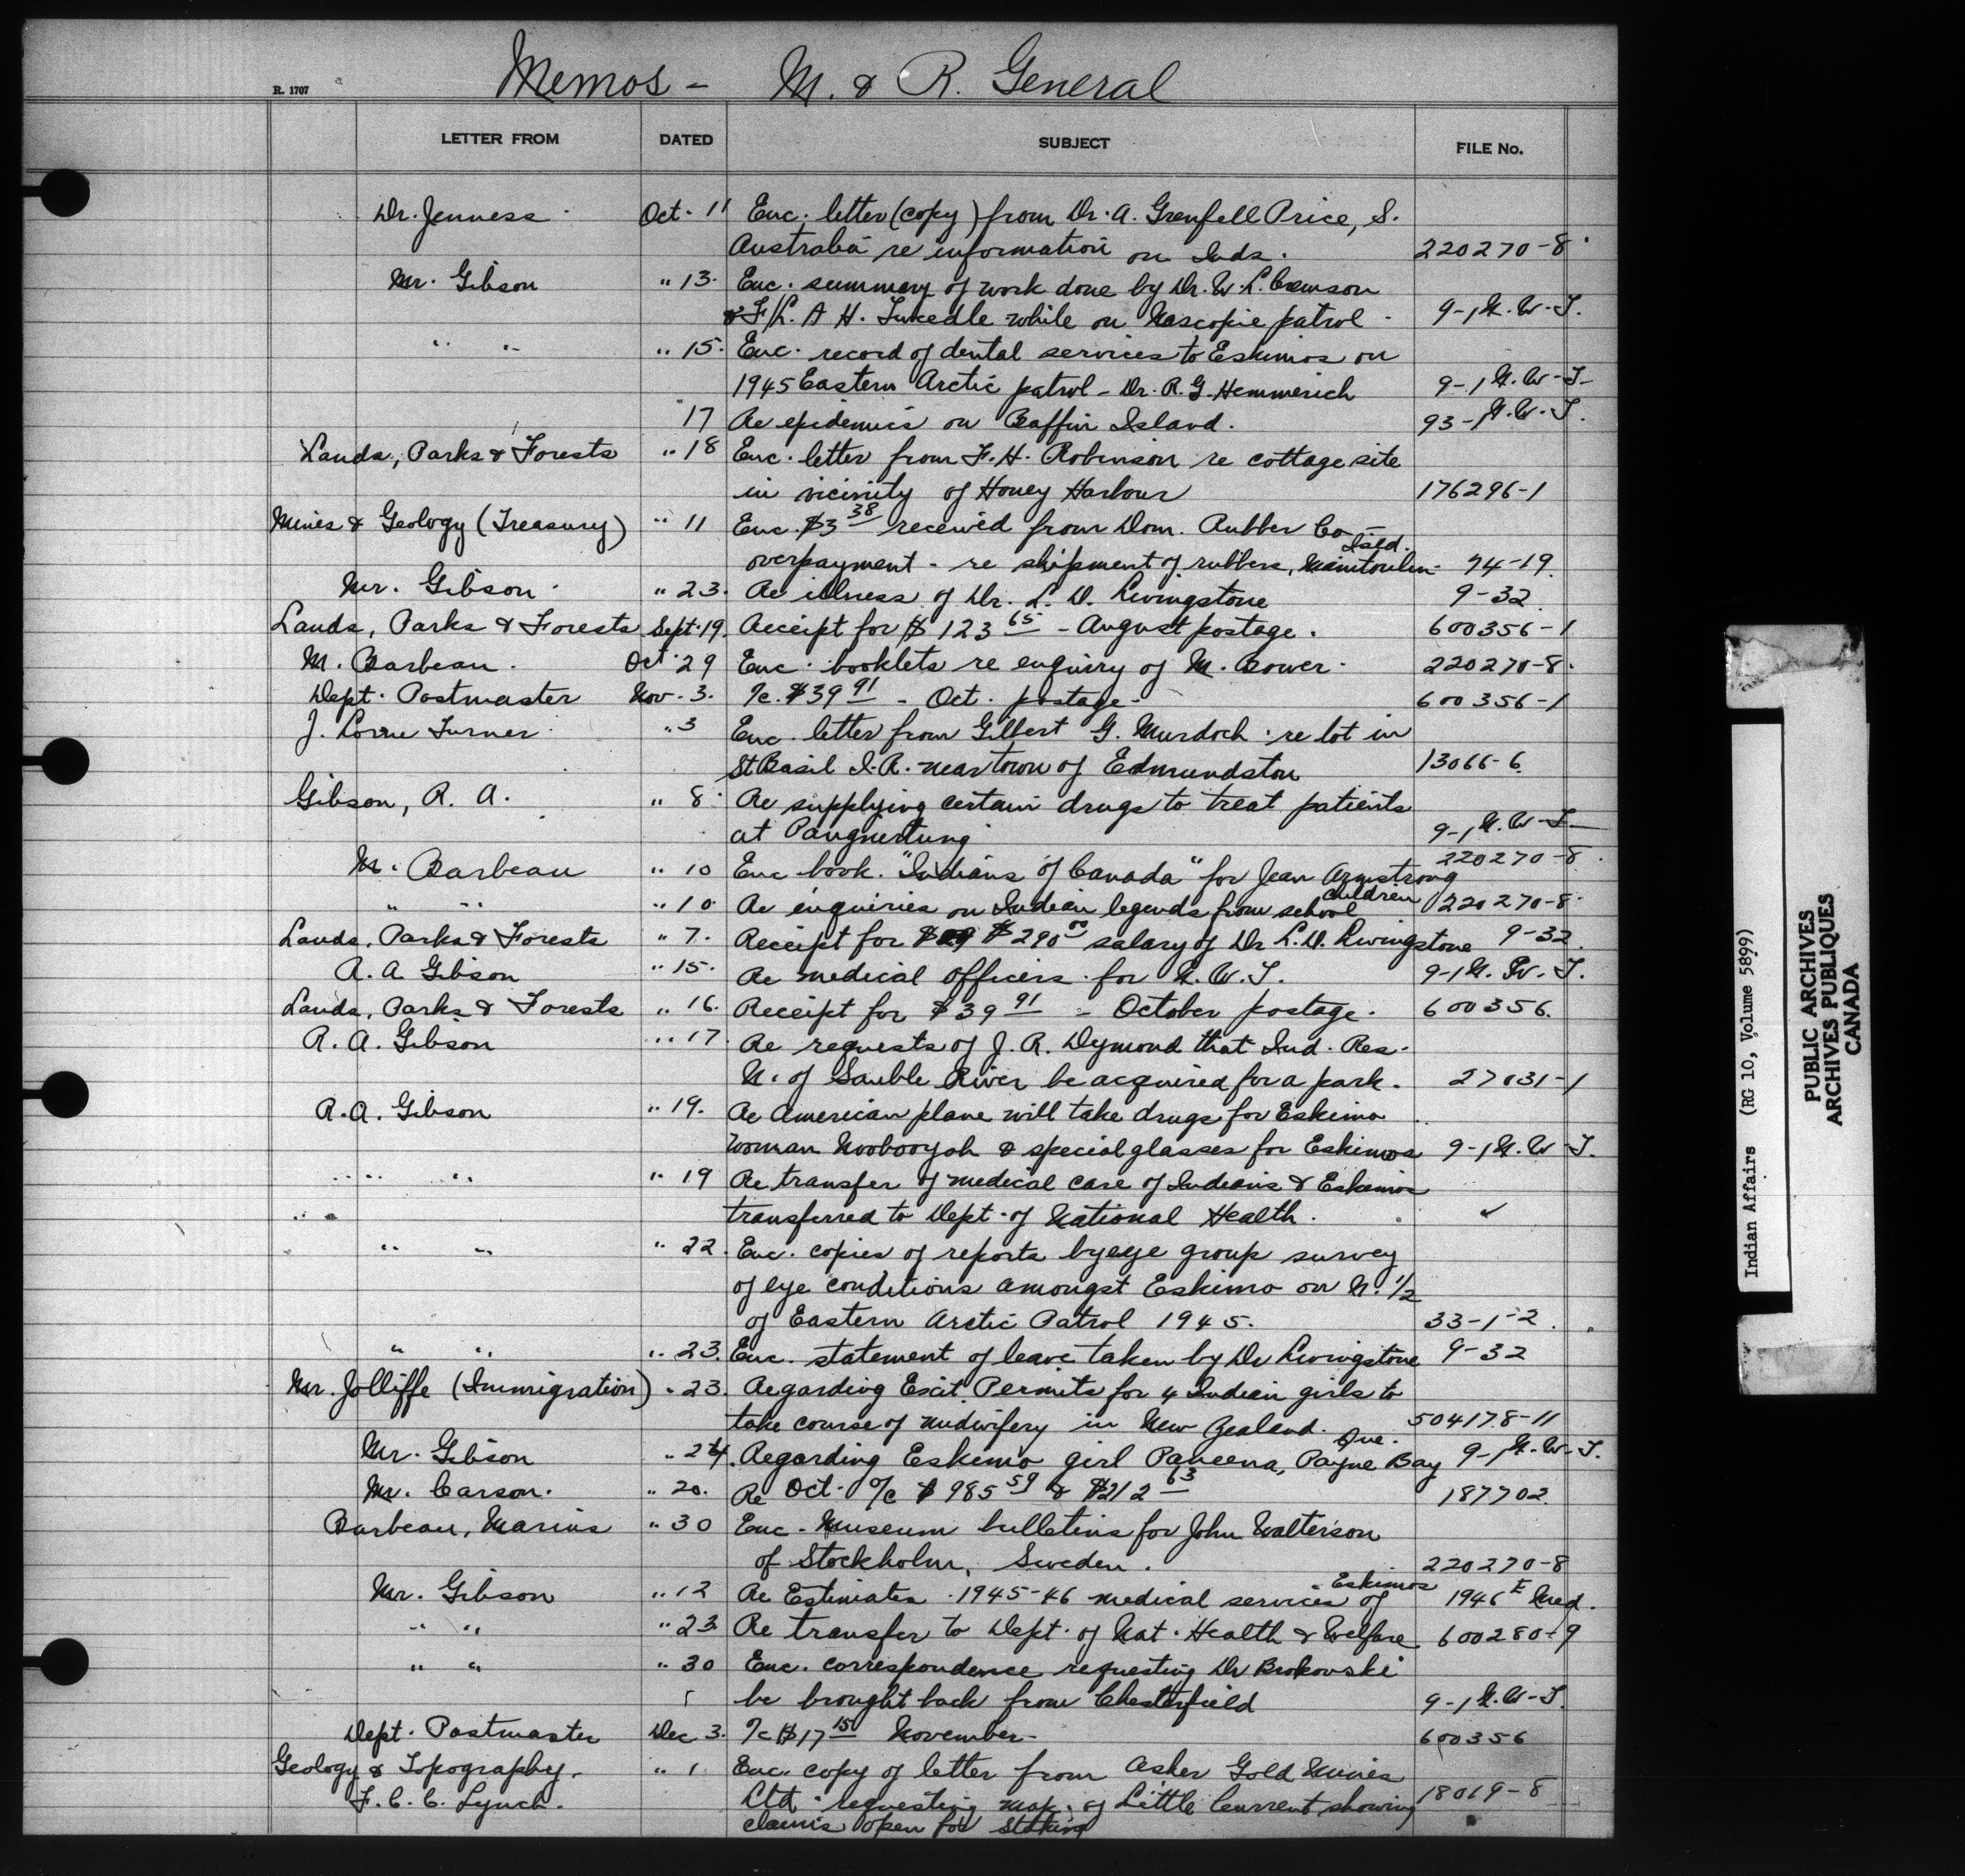 R. 1707
Memos - M. & R. General
LETTER FROM DATED SUBJECT FILE No.
Dr. Jenness Oct. 11 Enc. letter (copy) from Dr. A. Grenfell Price, S.
Australia re information on Inds. 220270-8
Mr. Gibson " 13. Enc. summary of work done by Dr. W. L.
& F/L. A H. while on Nascopie patrol - 9-1 N.W.T.
" " " 15. Enc. record of dental services to Eskimos on
1945 Eastern Arctic patrol - Dr. R. G. Hemmerich 9-1 N.W.T-
17 Re epidemics on Baffin Island. 93-1 N.W.T.
Lands, Parks & Forests " 18 Enc. letter from F. H. Robinson re cottage site
in vicinity of Honey Harbour 176296-1
Mines & Geology (Treasury) " 11 Enc. $3 38 received from Dom. Rubber Co -
overpayment - re shipment of rubbers, Manitoulin Isld. 74-19.
Mr. Gibson " 23. Re illness of Dr. L. D. Livingstone 9-32.
Lands, Parks & Forests Sept. 19. Receipt for $123 65 - August postage. 600356-1
M. Barbeau. Oct. 29 Enc. booklets re enquiry of M. Bower. 220270-8.
Dept. Postmaster Nov. 3. %c. $39 91 - Oct. postage - 600356-1
J. Lorne Turner " 3 Enc. letter from Gilbert G. Murdoch re lot in
St Basil I.R. near town of Edmundston 13066-6.
Gibson, R. A. " 8. Re supplying certain drugs to treat patients
at Pangnirtung 9-1 N.W.T-
M. Barbeau " 10 Enc book. "Indians of Canada" for Jean Armstrong 220270-8.
" " " 10 Re enquiries on Indian legends from school children 220270-8.
Lands, Parks & Forests " 7. Receipt for $290 00 salary of Dr L. D. Livingstone 9-32.
R. A. Gibson " 15. Re medical officers for N.W.T. 9-1 N.W.T.
Lands, Parks & Forests " 16. Receipt for $39 91 - October postage. 600356.
R. A. Gibson " 17. Re requests of J. R. Dymond that Ind. Res.
N. of Sauble River be acquired for a park. 27031-1
R. A. Gibson " 19. Re American plane will take drugs for Eskimo
woman Noobooyah & special glasses for Eskimos 9-1 N.W.T.
" " " 19 Re transfer of medical care of Indians & Eskimos
" transferred to Dept. of National Health. ✓
" " " 22. Enc. copies of reports by eye group survey
of eye conditions amongst Eskimo on N. 1/2
of Eastern Arctic Patrol 1945. 33-1-2.
" " " 23. Enc. statement of leave taken by Dr Livingstone 9-32
Mr. Jolliffe (Immigration) " 23. Regarding Exit Permits for 4 Indian girls to
take course of midwifery in New Zealand. 504178-11
Mr. Gibson " 24. Regarding Eskimo girl Paneena, Payne Bay Que. 9-1 N.W.T.
Mr. Carson. " 20. Re Oct. %c $985 59 & $212 63 187702.
Barbeau, Marius " 30 Enc. Museum bulletins for John Walterson
of Stockholm, Sweden. 220270-8
Mr. Gibson " 12 Re Estimates 1945-46 medical services of Eskimos 1946 E Med.
" " " 23 Re transfer to Dept. of Nat. Health & Welfare. 600280-9
" " " 30 Enc. correspondence requesting Dr Brokovski
be brought back from Chesterfield 9-1 N.W.T.
Dept. Postmaster Dec 3. %c $17 15 November - 600356
Geology & Topography. " 1 Enc. copy of letter from Asher Gold Mines
F. C. C. Lynch. Ltd. requesting map of Little Current showing 18019-8
claims open for staking
Indian Affairs (RG 10, Volume 5899)
PUBLIC ARCHIVES
ARCHIVES PUBLIQUES
CANADA